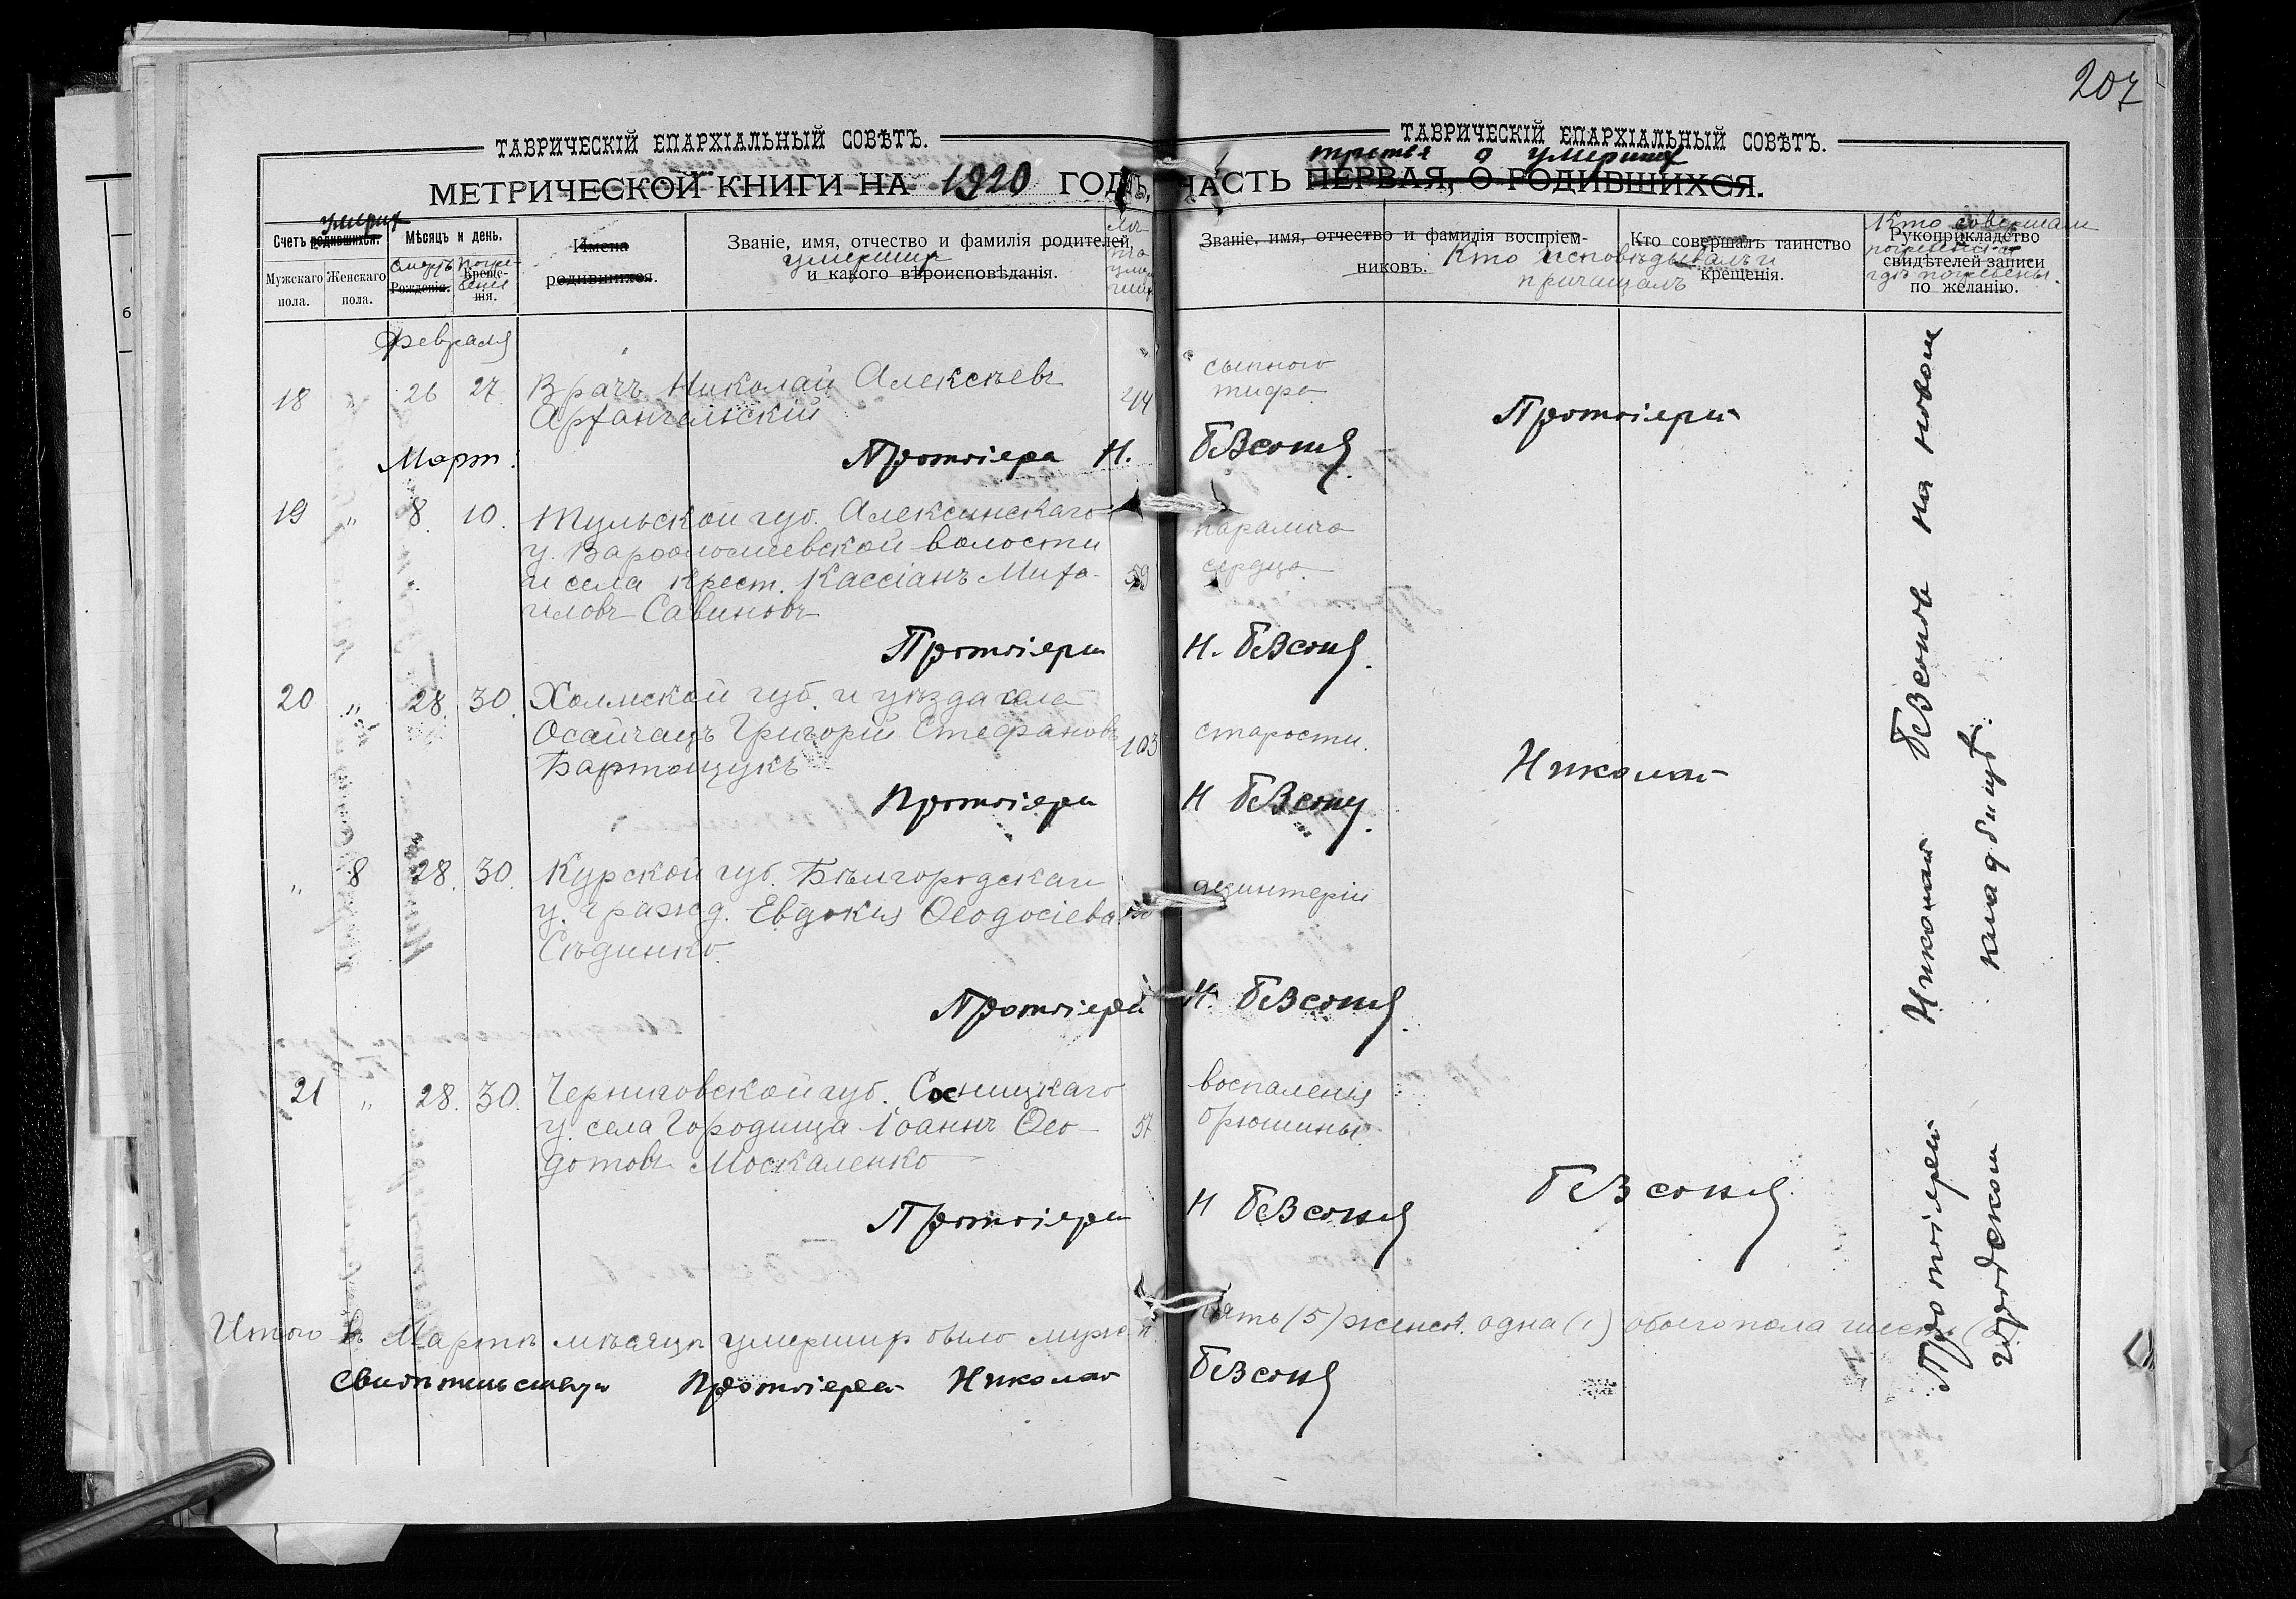 207
ТАВРИЧЕСКІЙ ЕПАРХІАЛЬНЫЙ СОВѢТЪ.
ТАВРИЧЕСКІЙ ЕПАРХІАЛЬНЫЙ СОВѢТЪ.
третья о умершихъ
МЕТРИЧЕСКОЙ КНИГИ НА 1920 ГОДЪ, ЧАСТЬ ПЕРВАЯ, О РОДИВШИХСЯ.
умерш
Счетъ родившихся.
Мужскаго пола.
Женскаго пола.
Мѣсяцъ и день.
Смерть
Рожденія.
Погре-
бенія
Креще-
нія.
Имена
родившихся.
Званіе, имя, отчество и фамилія родителей,
умершихъ
и какого вѣроисповѣданія.
Лѣ-
та
уме-
рших
Званіе, имя, отчество и фамилія воспріем-
никовъ.
Кто исповѣдывалъ и
причащалъ
Кто совершалъ таинство
крещенія.
Кто совершалъ
погребеніе и
гдѣ погребены.
Рукоприкладство
свидѣтелей записи
по желанію.
Февраля
18 " 26 27. Врачъ Николай Алексѣевъ 44 сыпного
Архангельскій тифа.
Протоіерей
Март. Протоіерей Н. Безсоновъ.
19 " 8. 10. Тульской губ. Алексинскаго паралича
у. Варфоломеевской волости
и села крест. Кассіанъ Миха- 59 сердца.
иловъ Савиновъ
Протоіерей Н. Безсоновъ.
20 " 28. 30. Холмской губ. и уѣзда села
Осайчацъ Григорій Стефановъ 103 старости.
Бартощукъ
Николай
Протоіерей Н Безсоновъ.
" 8 28. 30. Курской губ. Бѣлгородскаго
у. гражд. Евдокія Ѳеодосіева дизинтеріи
Сѣдинко.
Протоіерей Н. Безсоновъ.
21 " 28. 30. Черниговской губ. Сосницкаго воспаленія
у. села Городища Іоаннъ Ѳео- 57 брюшины.
дотовъ Москаленко
Безсоновъ
Протоіерей Н Безсоновъ
Протоіерей Николай Безсоновъ на новомъ
городскомъ кладбищѣ.
Итого въ Мартѣ мѣсяцѣ умершихъ было муж. п. пять (5) женск. одна (1) обоего пола шесть
Свидѣтельствую Протоіерей Николай Безсоновъ